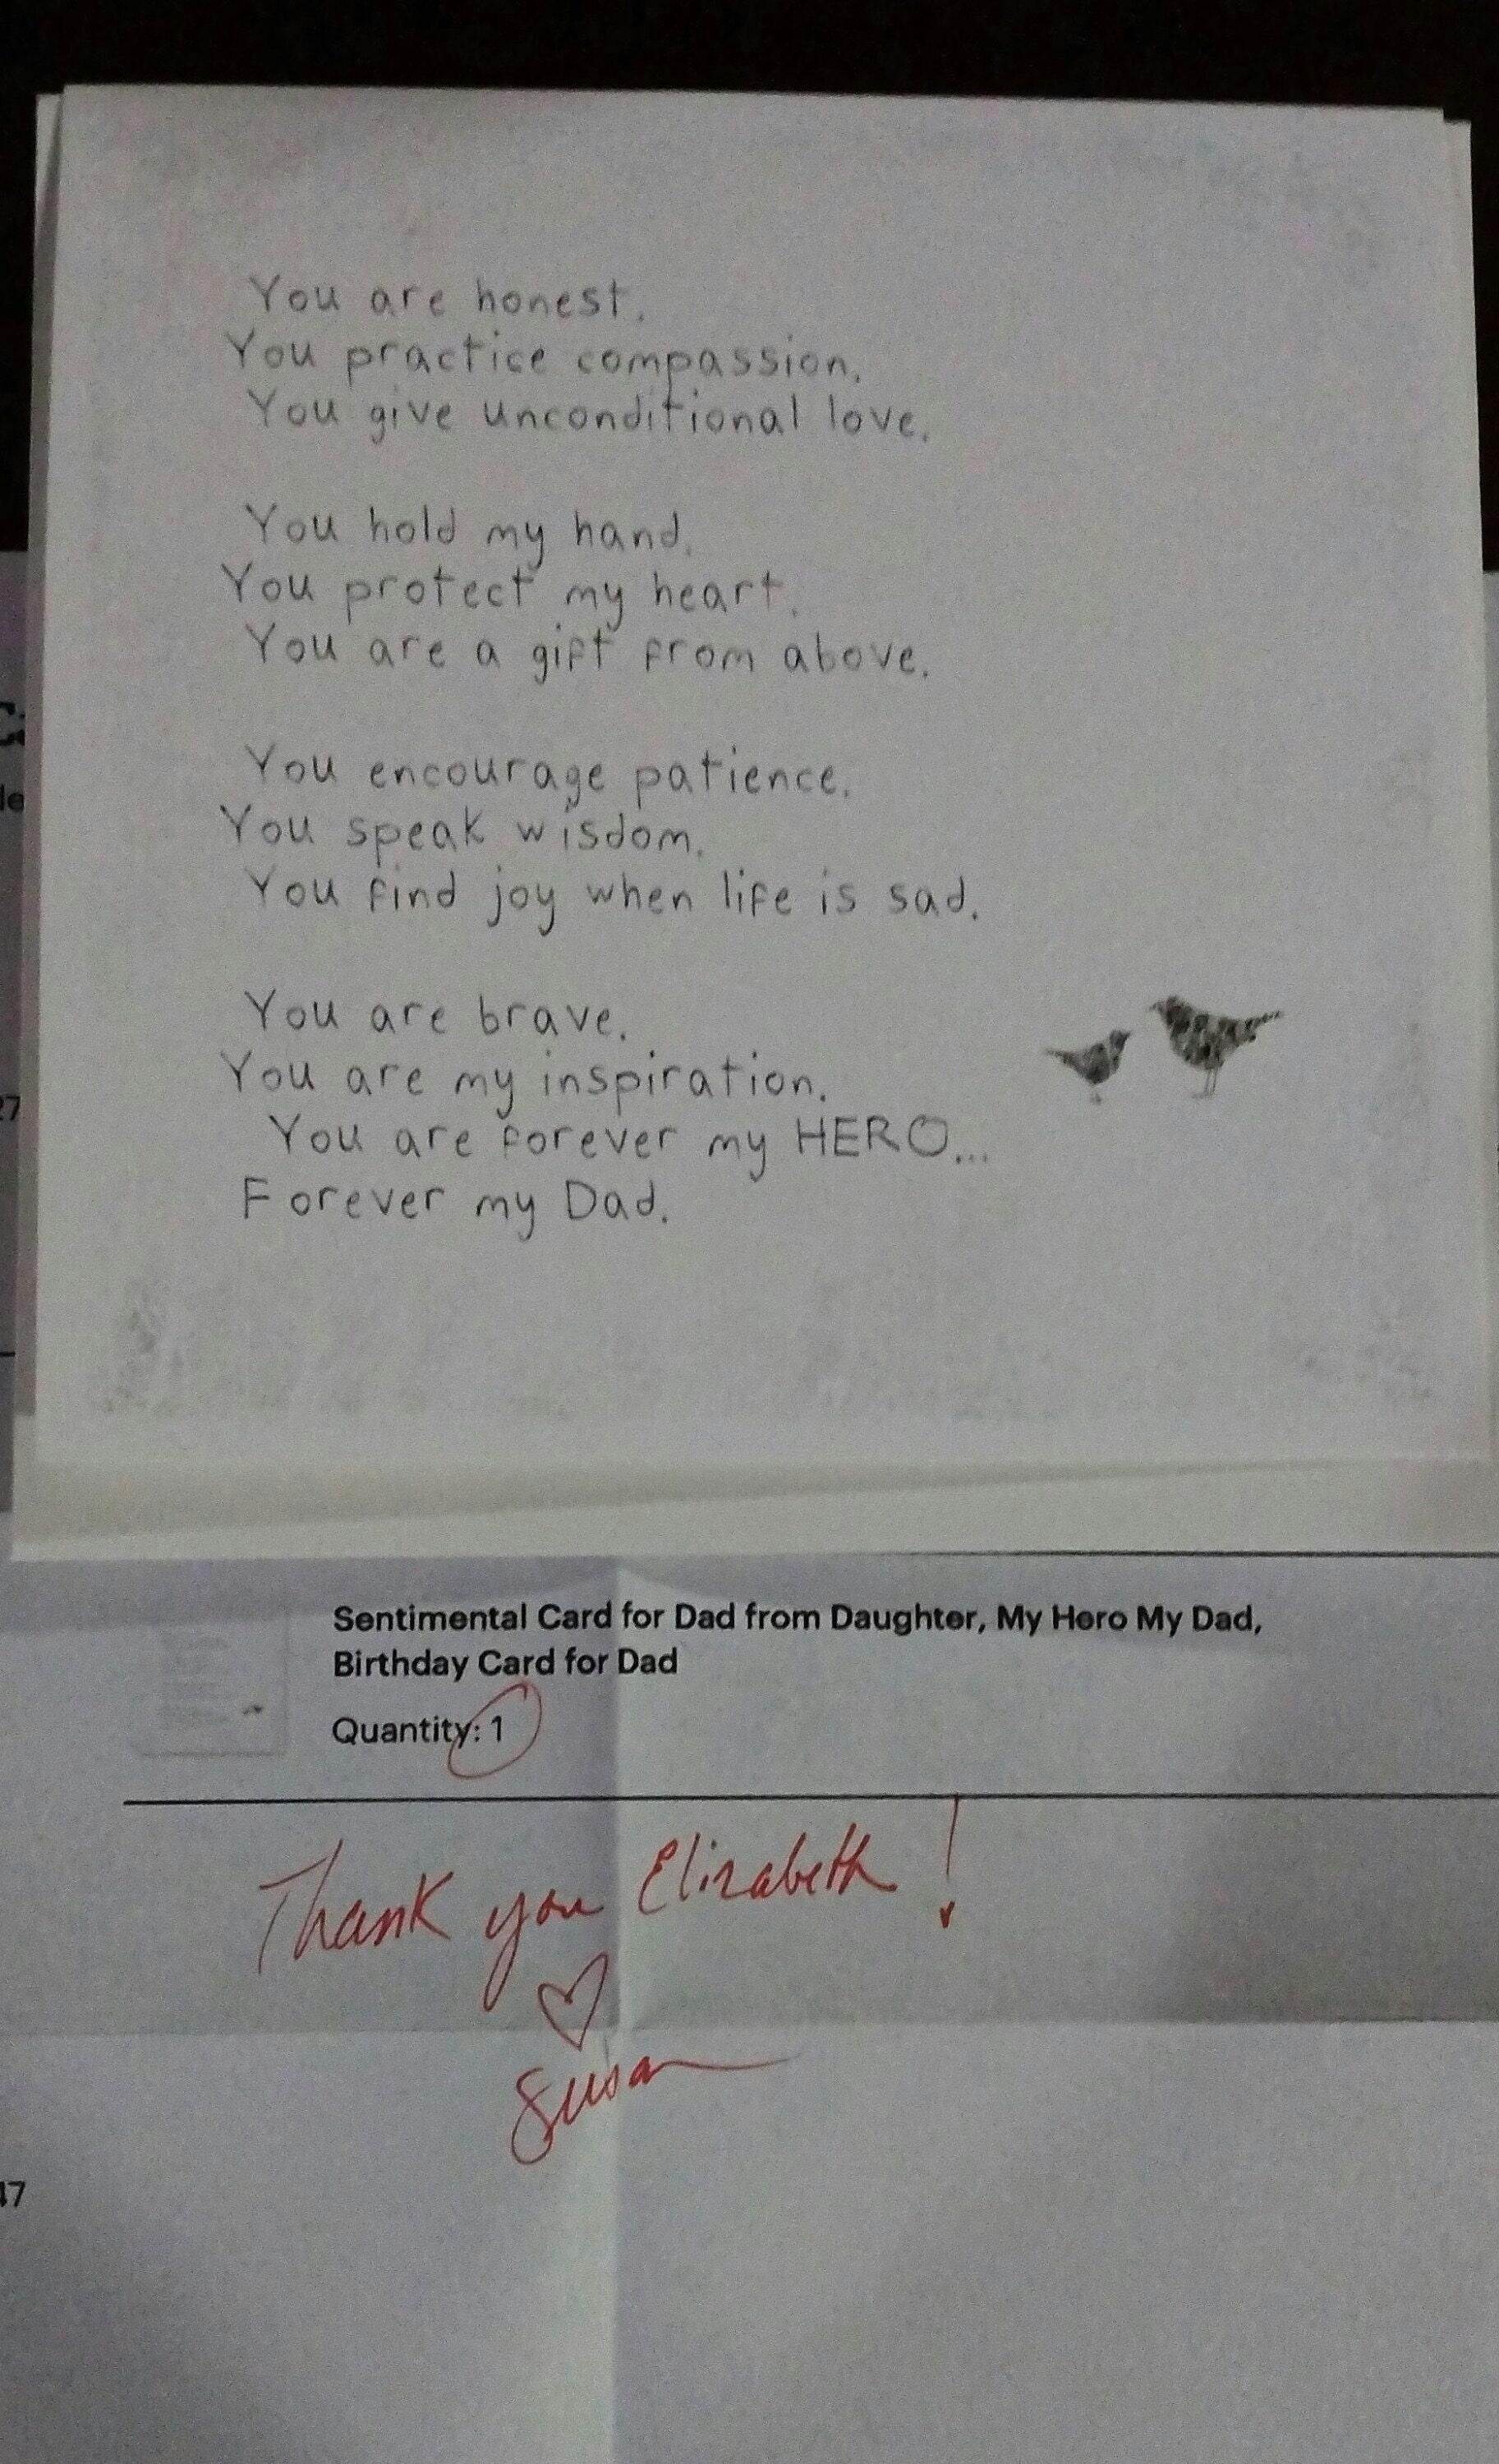 You are honest.
You practice compassion.
You give unconditional love.
You hold my hand.
You protect my heart.
You are a gift from above.
You encourage patience.
You speak wisdom.
You find joy when life is sad.
You are brave.
You are my inspiration.
You are forever my HERO...
Forever my Dad.
Sentimental Card for Dad from Daughter, My Hero My Dad,
Birthday Card for Dad
Quantity: 1
Thank you Elizabeth!
Susan